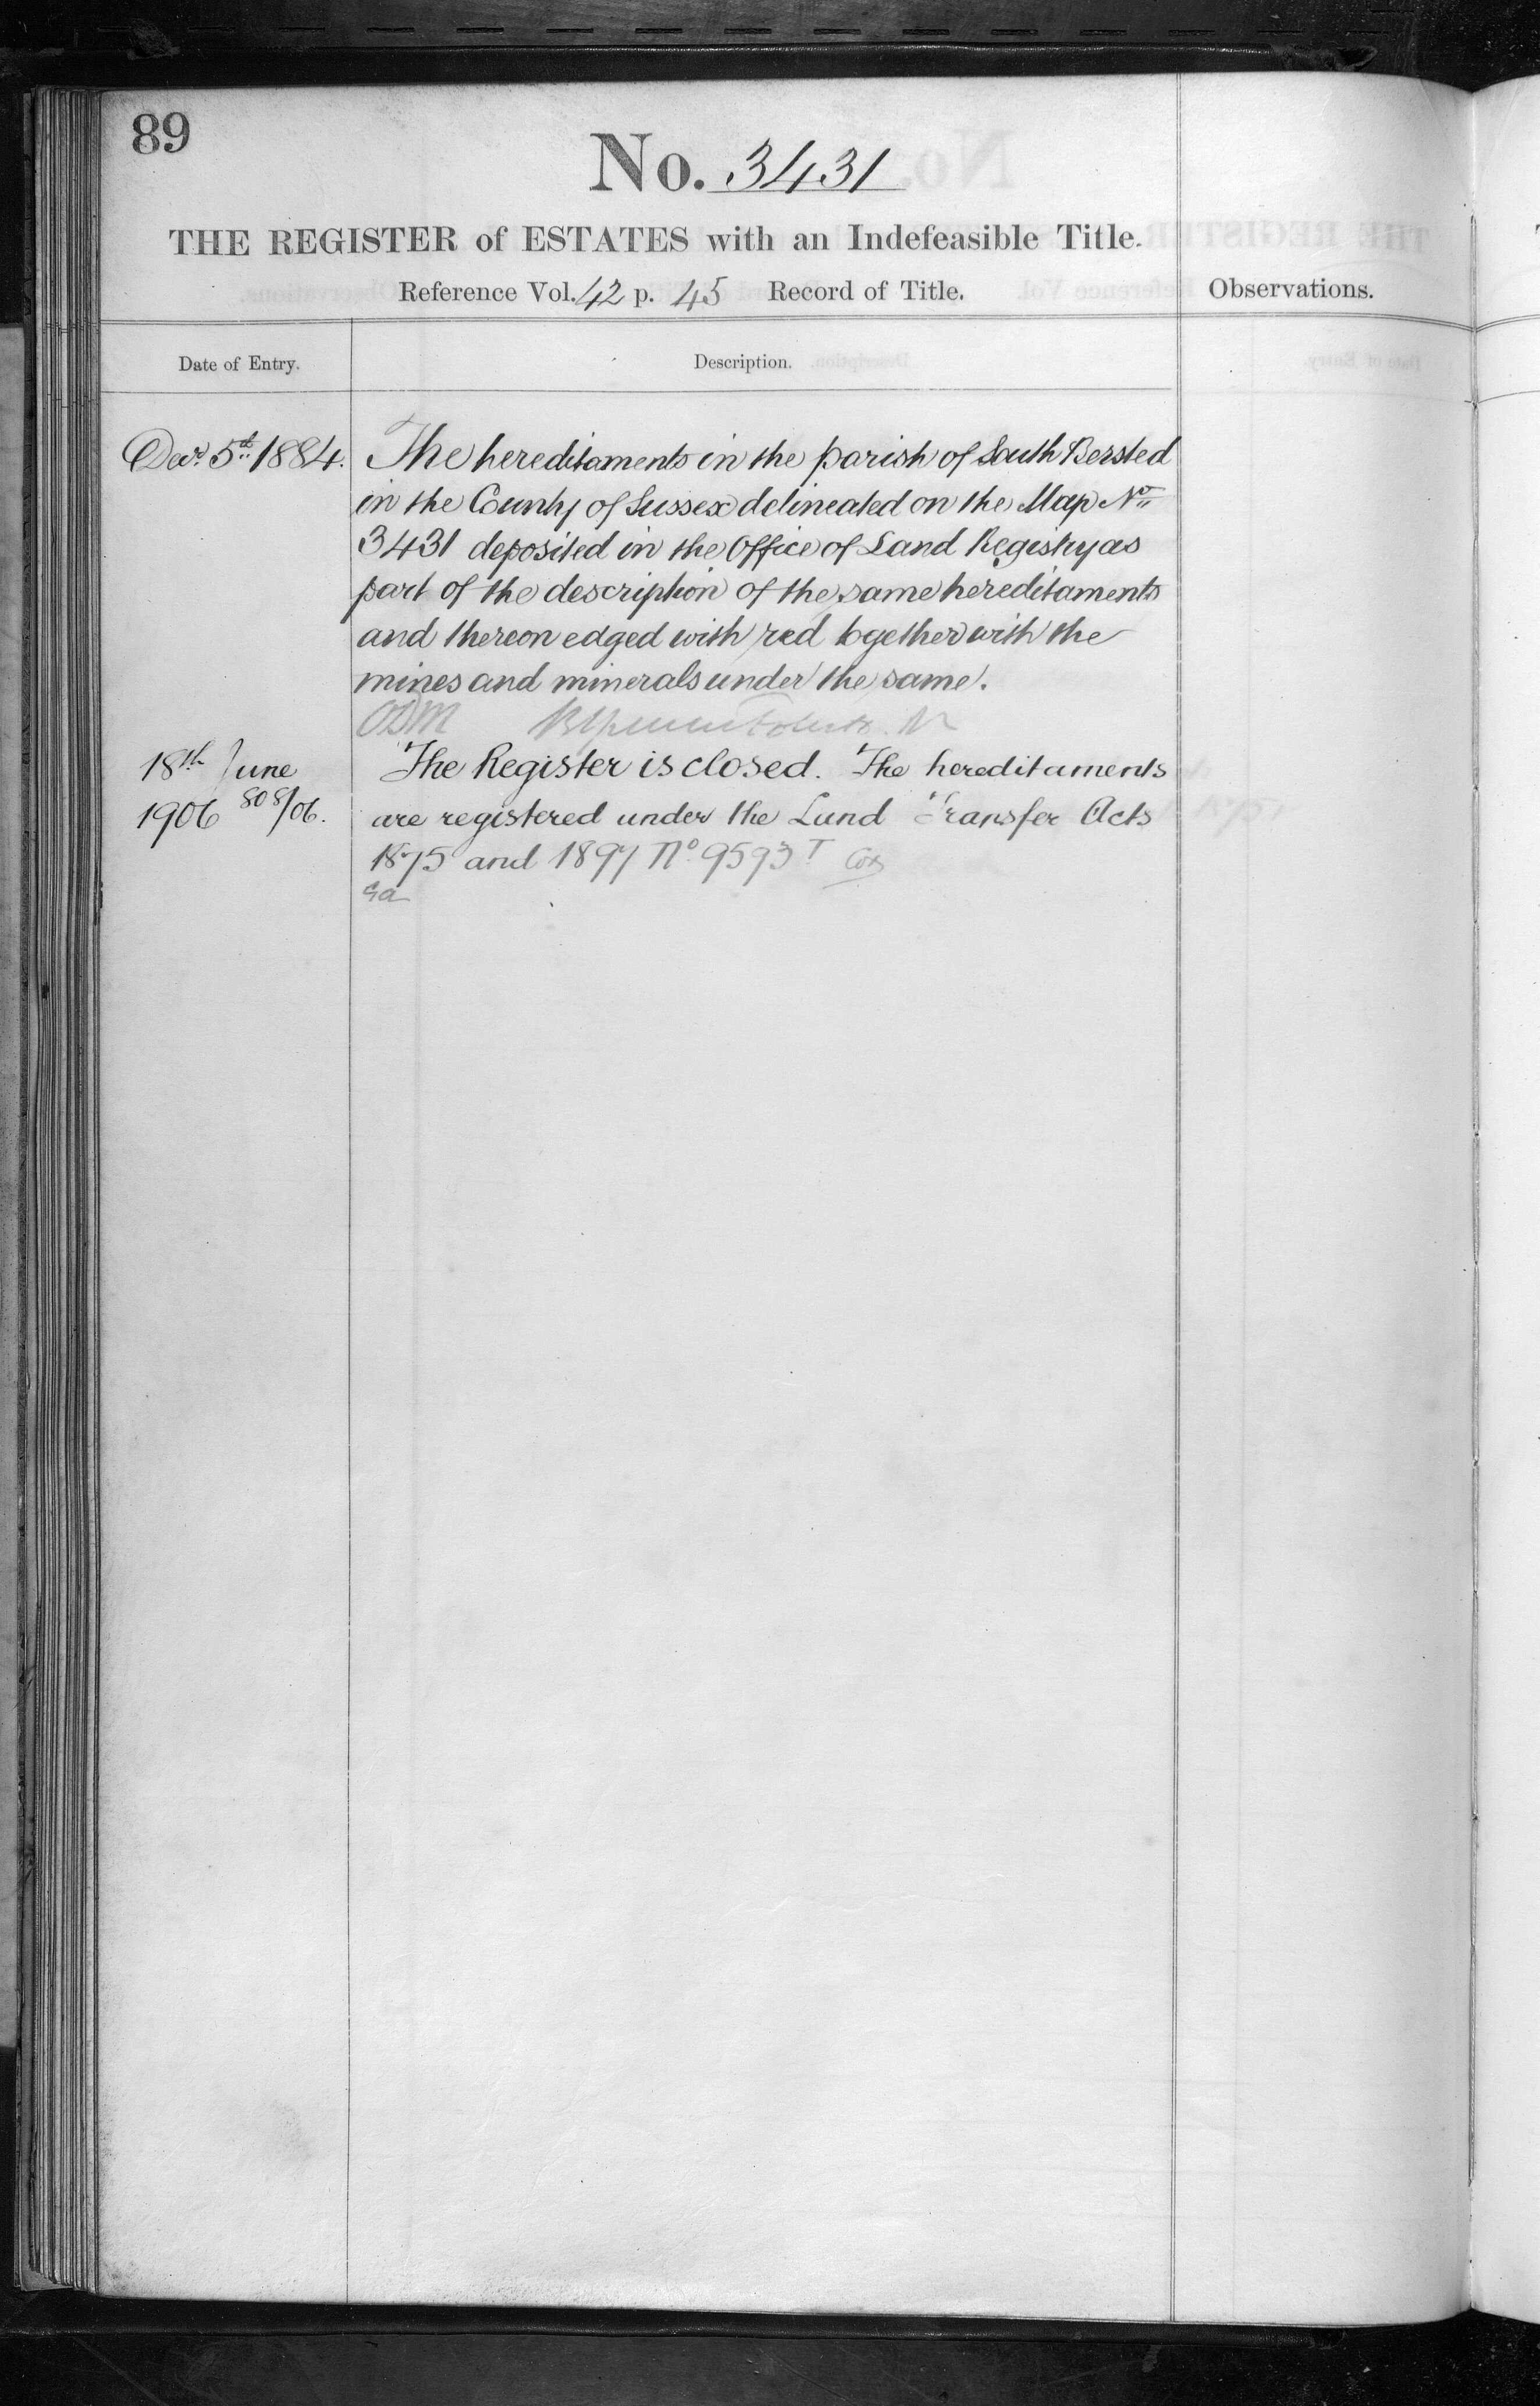 89
No. 3431
THE REGISTER of ESTATES with an Indefeasible Title.
Reference Vol. 42 p. 45 Record of Title.
Observations.
Date of Entry.
Description.
Decr. 5th 1884.
The hereditaments in the parish of South Bersted
in the County of Sussex delineated on the Map No.
3431 deposited in the Office of Land Registry as
part of the description of the same hereditaments
and thereon edged with red together with the
mines and minerals under the same.
18th June
1906 808/06.
The Register is closed. The hereditaments
are registered under the Land Transfer Acts
1875 and 1897 No. 9593 T